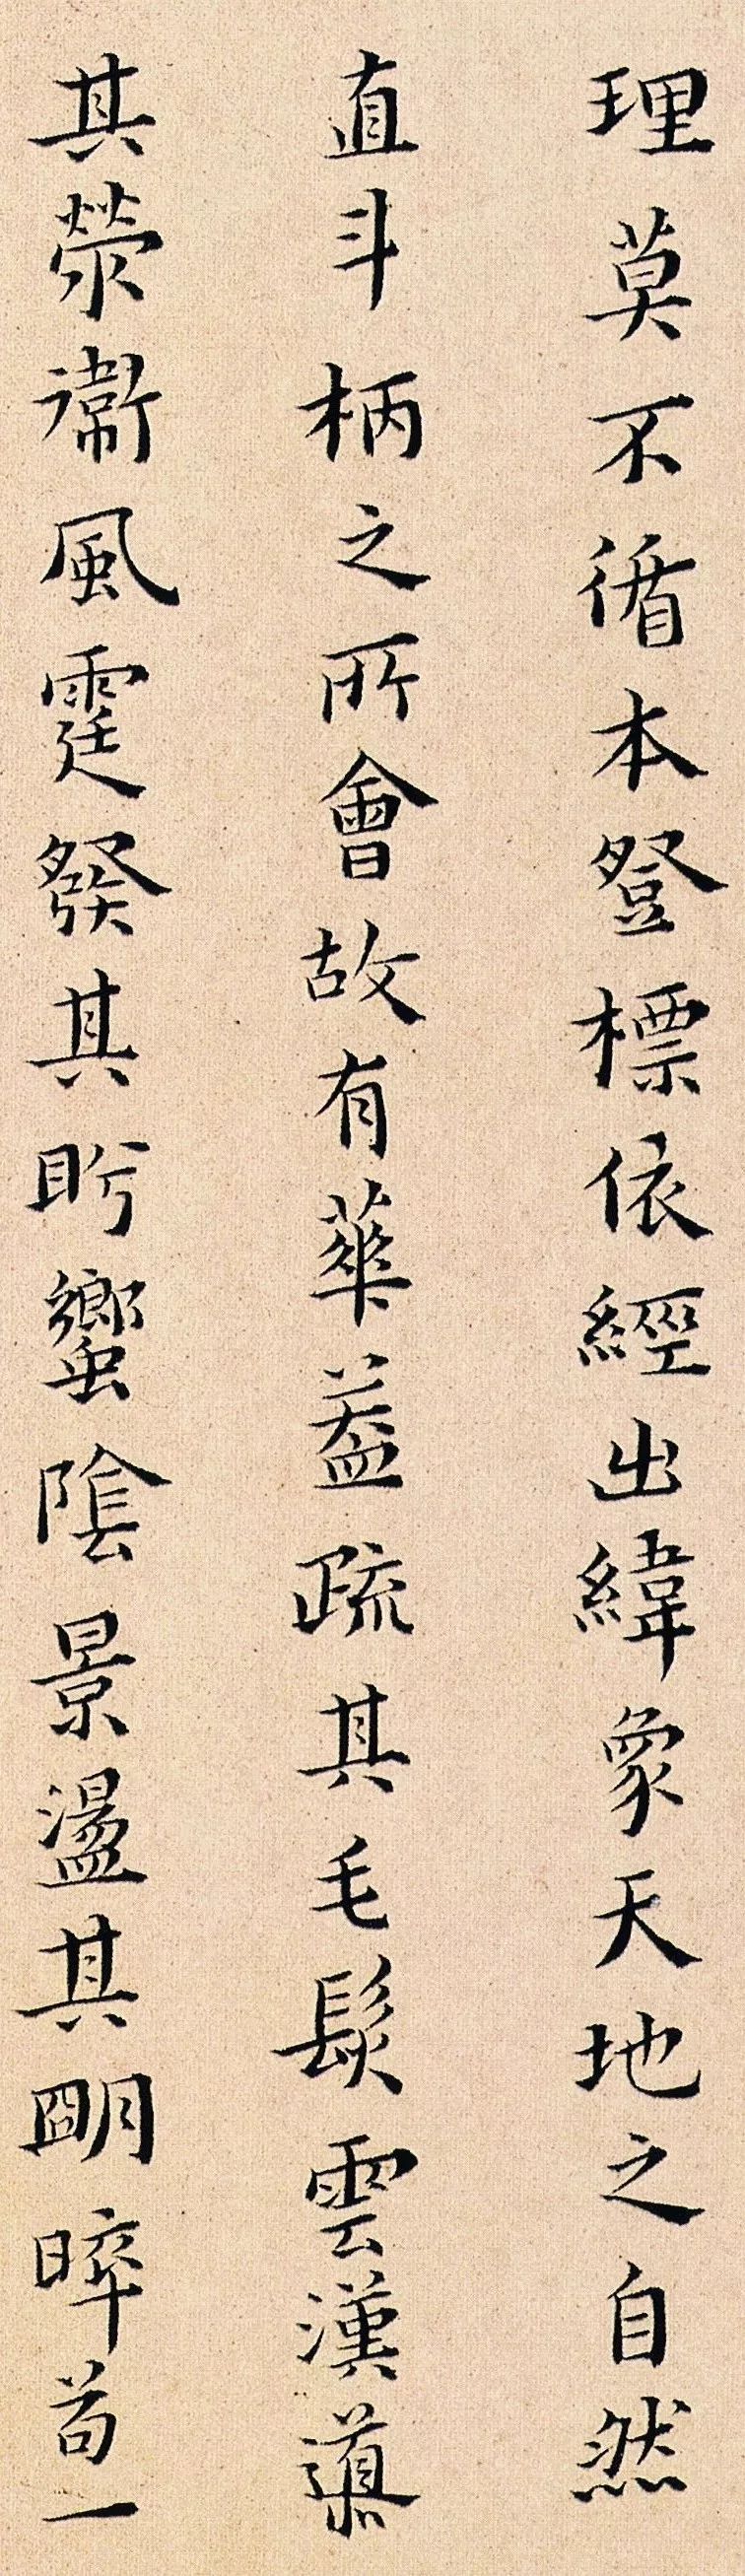 理莫不循本登標依經出緯象天地之自然
直斗柄之所會故有華蓋疏其毛髮雲漢導
其滎衛風霆發其肹蠁陰景盪其明晬苟一